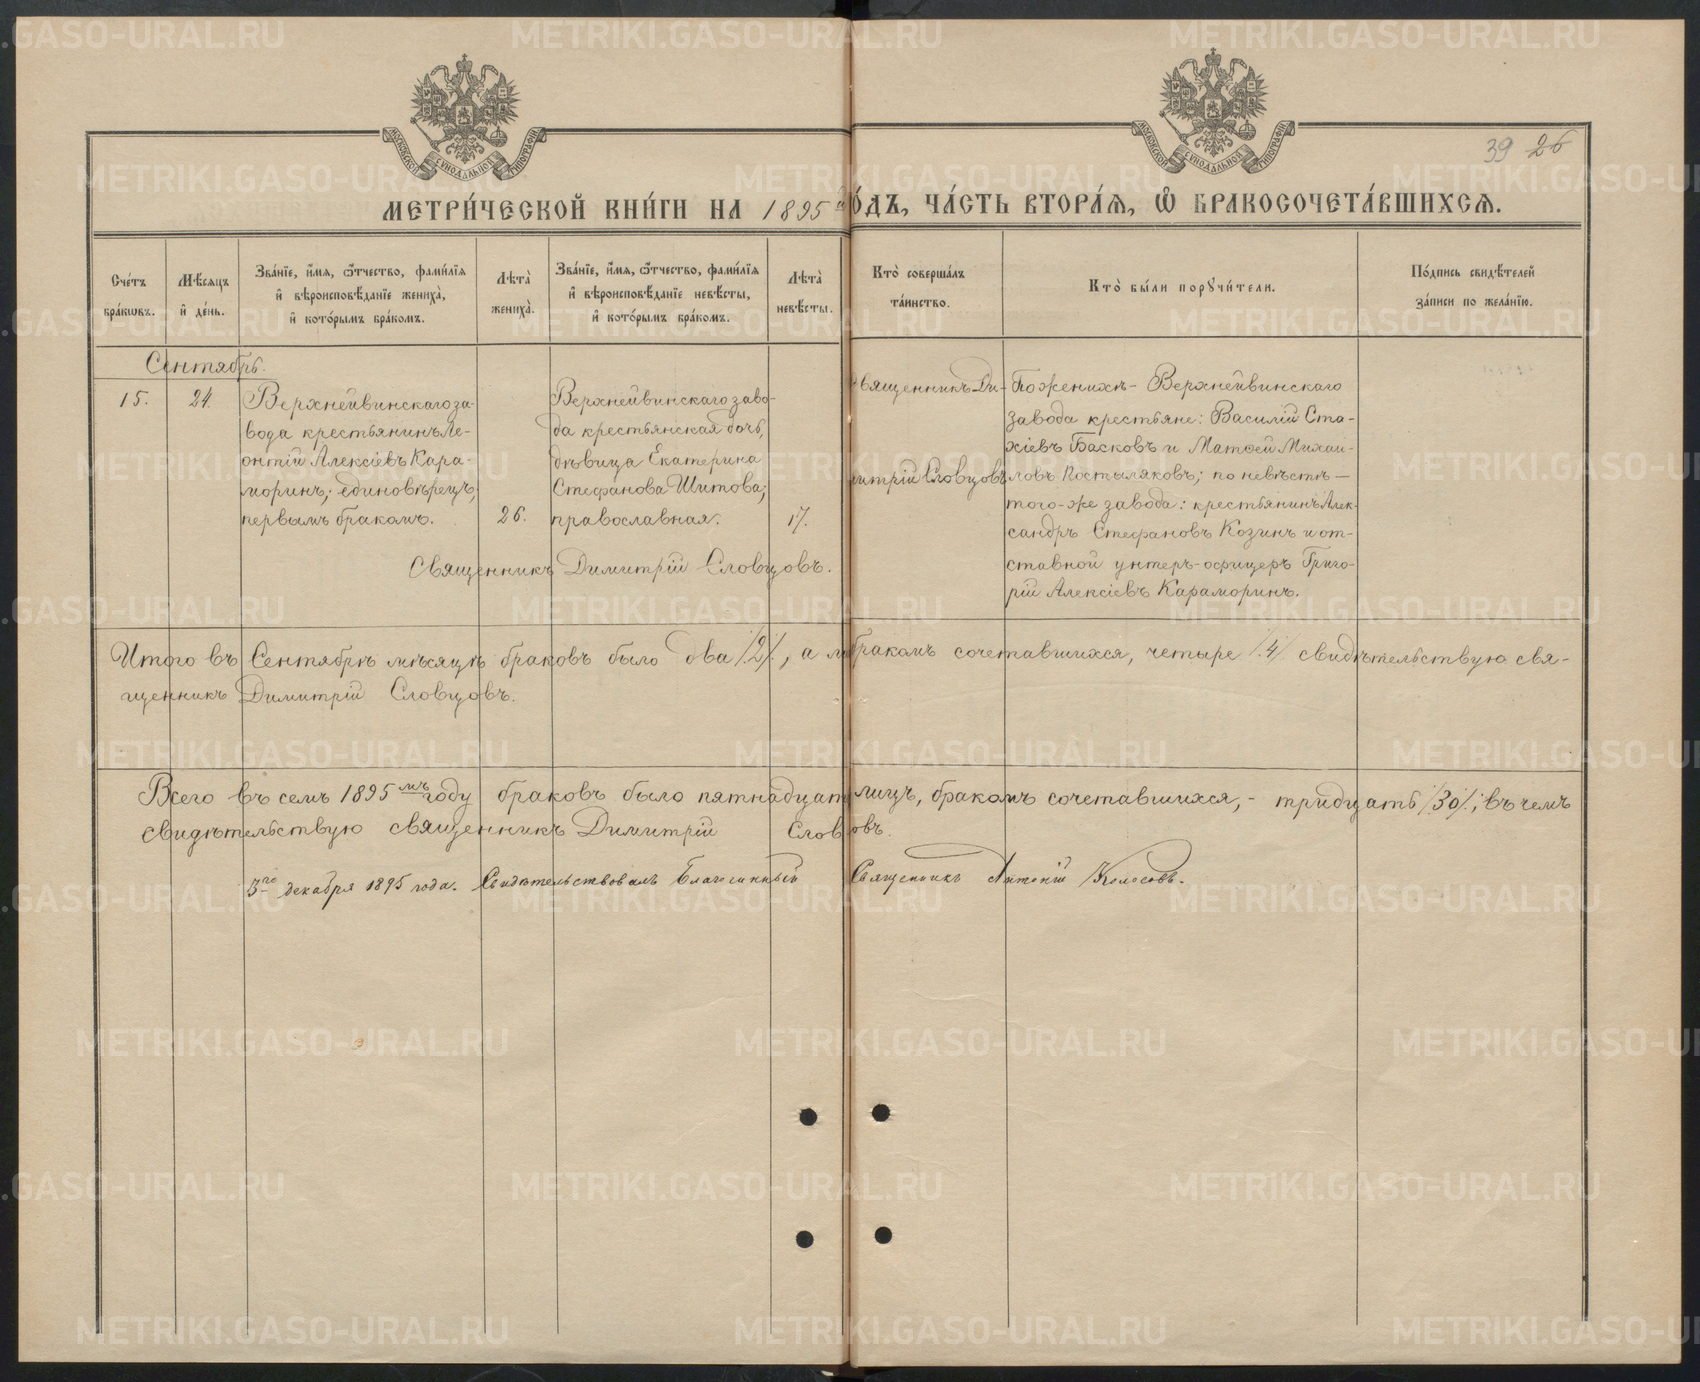 39 26
МЕТРИ́ЧЕСКОЙ КНИ́ГИ НА 1895 й ГО́ДЪ, ЧА́СТЬ ВТОРА́Я, Ѽ БРАКОСОЧЕТА́ВШИХСЯ.
Сче́тъ бра́кѡвъ.
Мѣ́сяцъ и҆ де́нь.
Зва́нїе, и҆́мя, ѻ҆́тчество, фами́лїя
и҆ вѣроисповѣ́данїе жениха̀,
и҆ кото́рымъ бра́комъ.
Лѣта̀ жениха̀.
Зва́нїе, и҆́мя, ѻ҆́тчество, фами́лїя
и҆ вѣроисповѣ́данїе невѣ́сты,
и҆ кото́рымъ бра́комъ.
Лѣта̀ невѣ́сты.
Кто̀ соверша́лъ
та́инство.
Кто̀ бы́ли порꙋчи́тели.
По́дпись свидѣ́телей
за́писи по жела́нїю.
Сентябрь.
15.
24.
Верхнейвинскаго за-
вода крестьянинъ Ле-
онтій Алексіевъ Кара-
моринъ; единовѣрецъ,
первымъ бракомъ.
26.
Верхнейвинскаго заво-
да крестьянская дочь,
дѣвица Екатерина
Стефанова Шитова;
православная.
17.
Священникъ Димитрій Словцовъ.
Священникъ Ди-
митрій Словцовъ
По женихѣ - Верхнейвинскаго
завода крестьяне: Василій Ста-
хіевъ Басковъ и Матѳей Михаи-
ловъ Костыляковъ; по невѣстѣ —
того-же завода: крестьянинъ Алек-
сандръ Стефановъ Козинъ и от-
ставной унтеръ-офицеръ Григо-
рій Алексіевъ Караморинъ.
Итого въ Сентябрѣ мѣсяцѣ браковъ было два /2/, а л бракомъ сочетавшихся, четыре /4/ свидѣтельствую свя-
щенникъ Димитрій Словцовъ.
Всего въ семъ 1895 мъ году браковъ было пятнадцат лицъ, бракомъ сочетавшихся, - тридцать /30/; въ чемъ
свидѣтельствую священникъ Димитрій Словцовъ.
3 го декабря 1895 года. Свидѣтельствовалъ Благочинный Священникъ Антоній Колосовъ.